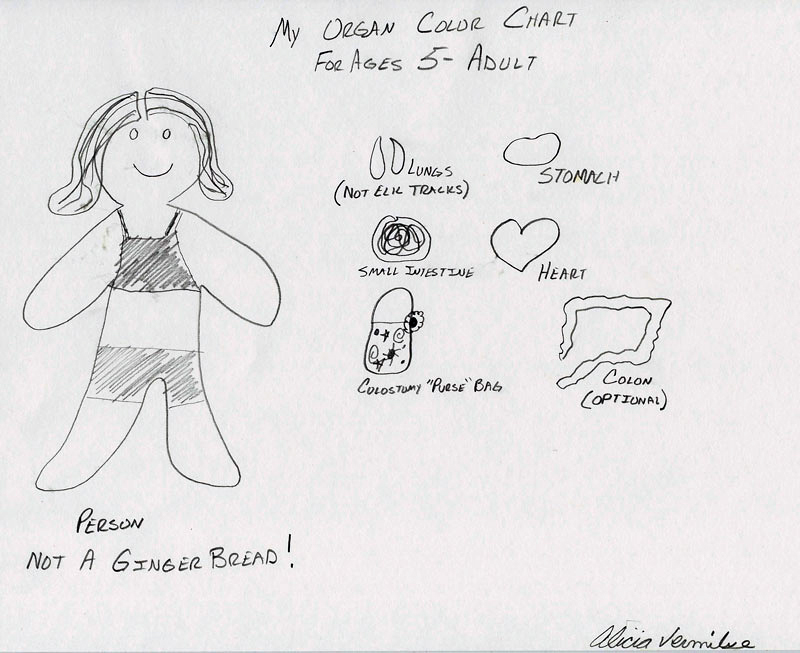 My ORGAN COLOR CHART
FOR AGES 5- ADULT
LUNGS
(NOT ELK TRACKS)
STOMACH
SMALL INTESTINE
HEART
COLOSTOMY "PURSE" BAG
COLON
(OPTIONAL)
PERSON
NOT A GINGER BREAD!
Alicia